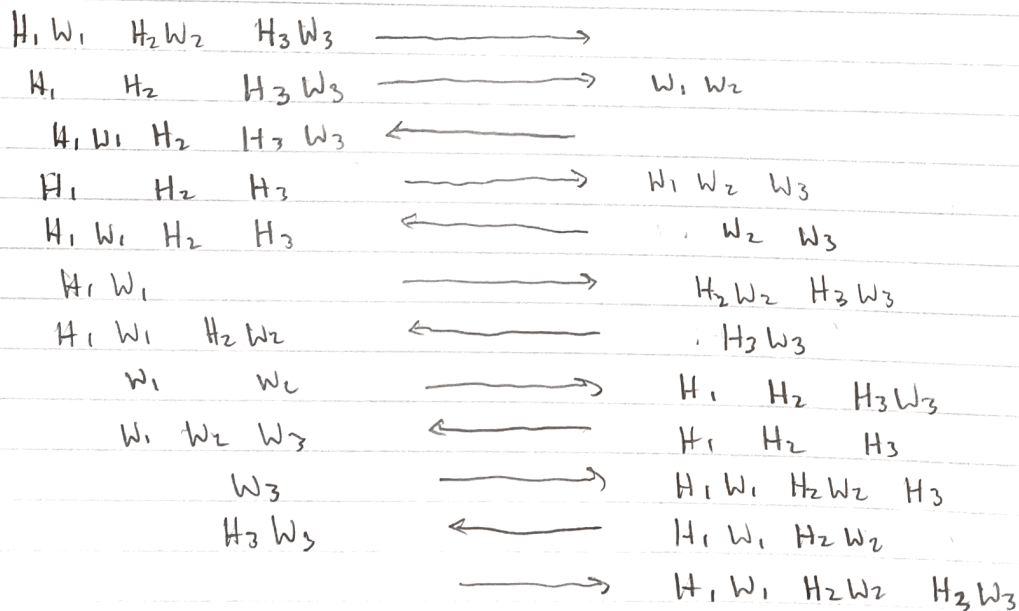 H₁ W₁ H₂ W₂ H₃ W₃ ⟶
H₁ H₂ H₃ W₃ ⟶ W₁ W₂
H₁ W₁ H₂ H₃ W₃ ⟵
H₁ H₂ H₃ ⟶ W₁ W₂ W₃
H₁ W₁ H₂ H₃ ⟵ W₂ W₃
H₁ W₁ ⟶ H₂ W₂ H₃ W₃
H₁ W₁ H₂ W₂ ⟵ H₃ W₃
W₁ W₂ ⟶ H₁ H₂ H₃ W₃
W₁ W₂ W₃ ⟵ H₁ H₂ H₃
W₃ ⟶ H₁ W₁ H₂ W₂ H₃
H₃ W₃ ⟵ H₁ W₁ H₂ W₂
⟶ H₁ W₁ H₂ W₂ H₃ W₃